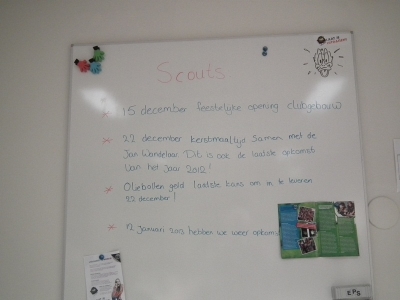 Scouts
* 15 december feestelijke opening clubgebouw
* 22 december kerstmaaltijd samen met de
Jan Wandelaar. Dit is ook de laatste opkomst
van het jaar 2012!
* Oliebollen geld laatste kans om in te leveren
22 december!
* 12 januari 2013 hebben we weer opkomst
EPS